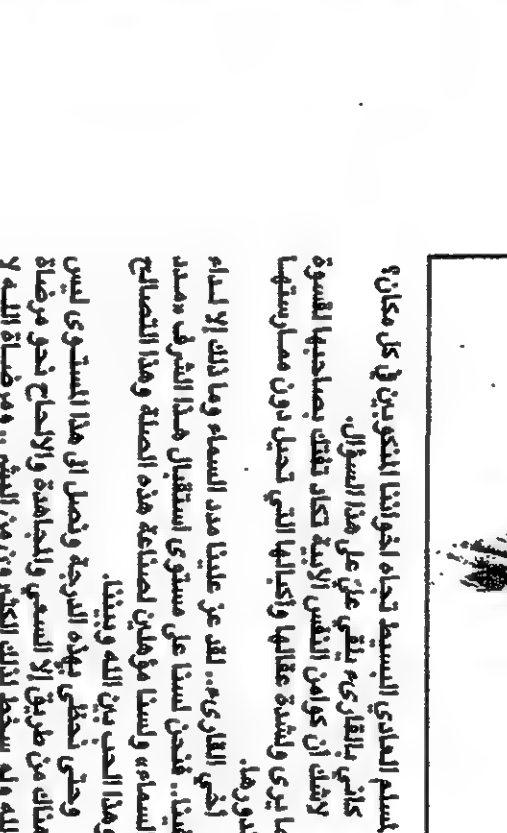 لمسلم العادي البسيط تجاه اخواننا المنكوبين في كل مكان؟
كأني بالقارىء يلقي عليّ على هذا السؤال.
لاشك أن كوامن النفس الأبية تكاد تفتك بصاحبها لقسوة
ما يرى ولشدة عقالها وأكبالها التي تحيل دون ممارستها
لدورها.
أخي القارىء.. لقد عز علينا مدد السماء وما ذلك إلا لداء
فينا.. فنحن لسنا على مستوى استقبال هذا الشرف «مدد
السماء» ولسنا مؤهلين لصناعة هذه الصلة وهذا التصالح
وهذا الحب بين الله وبيننا.
وحتى نحظى بهذه الدرجة ونصل الى هذا المستوى ليس
هناك من طريق إلا السعي والمجاهدة والالحاح نحو مرضاة
الله ولو سخط لذلك الكثيرون من البشر.. ومرضاة الله لا